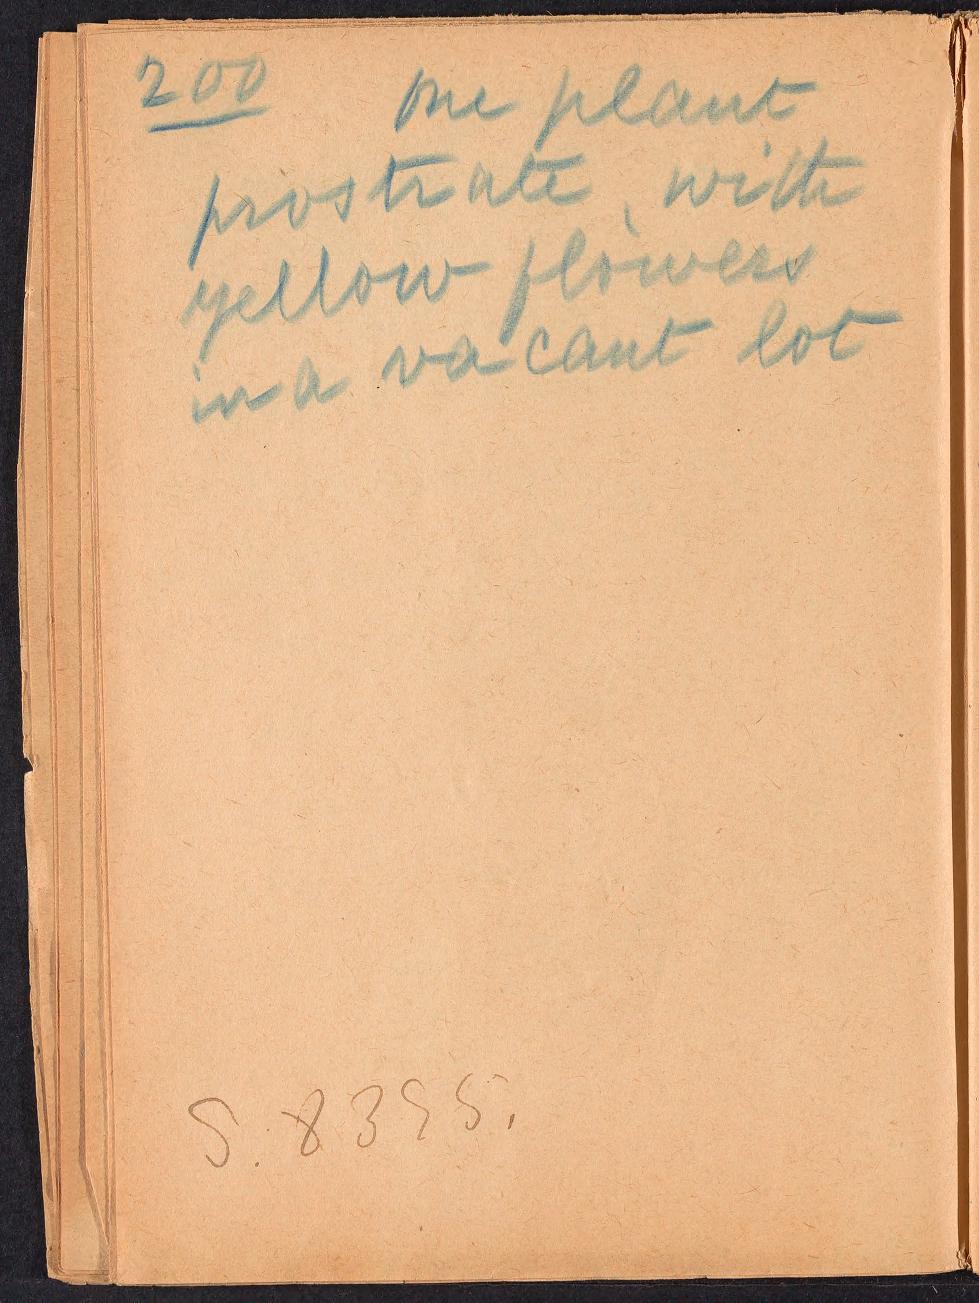 200 One plant
prostrate, with
yellow flowers
in a vacant lot
S. 8395.